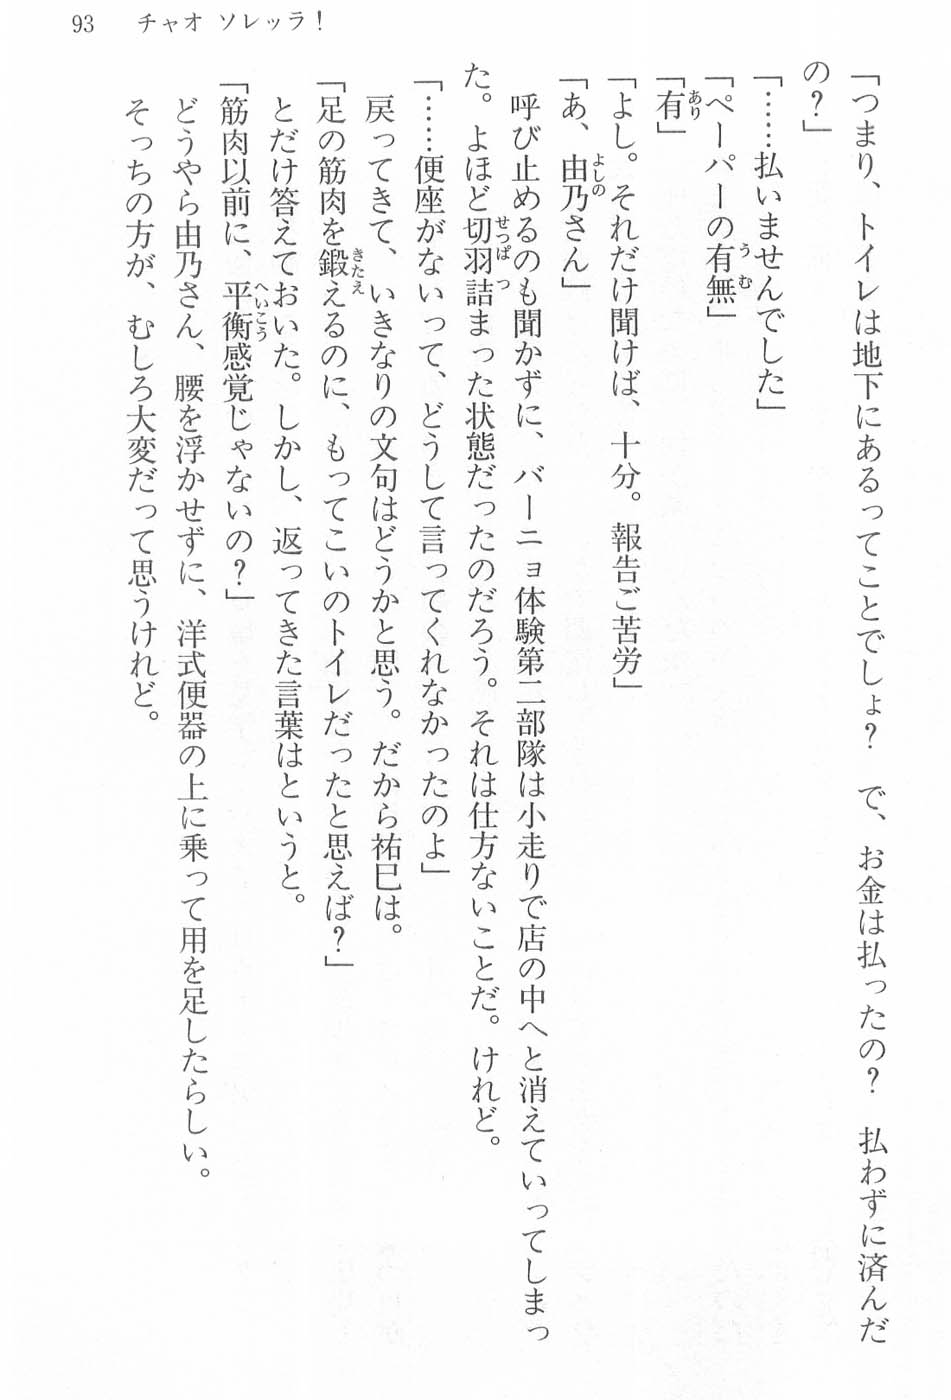 93　チャオ ソレッラ！
「つまり、トイレは地下にあるってことでしょ？　で、お金は払ったの？　払わずに済んだ
の？」
「……払いませんでした」
「ペーパーの有無」
「有」
「よし。それだけ聞けば、十分。報告ご苦労」
「あ、由乃さん」
　呼び止めるのも聞かずに、バーニョ体験第二部隊は小走りで店の中へと消えていってしまっ
た。よほど切羽詰まった状態だったのだろう。それは仕方ないことだ。けれど。
「……便座がないって、どうして言ってくれなかったのよ」
　戻ってきて、いきなりの文句はどうかと思う。だから祐巳は。
「足の筋肉を鍛えるのに、もってこいのトイレだったと思えば？」
　とだけ答えておいた。しかし、返ってきた言葉はというと。
「筋肉以前に、平衡感覚じゃないの？」
　どうやら由乃さん、腰を浮かせずに、洋式便器の上に乗って用を足したらしい。
　そっちの方が、むしろ大変だって思うけれど。